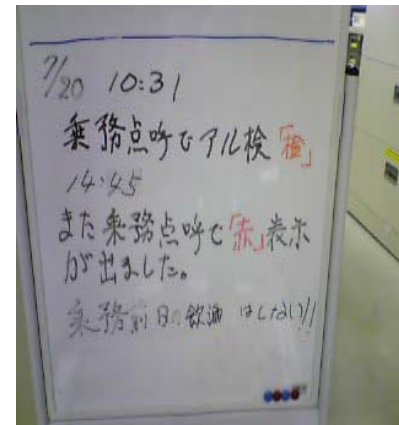 7/20 10:31
乗務点呼でアル検「橙」
14:45
また乗務点呼で「赤」表示
が出ました。
乗務前日の飲酒はしない!!